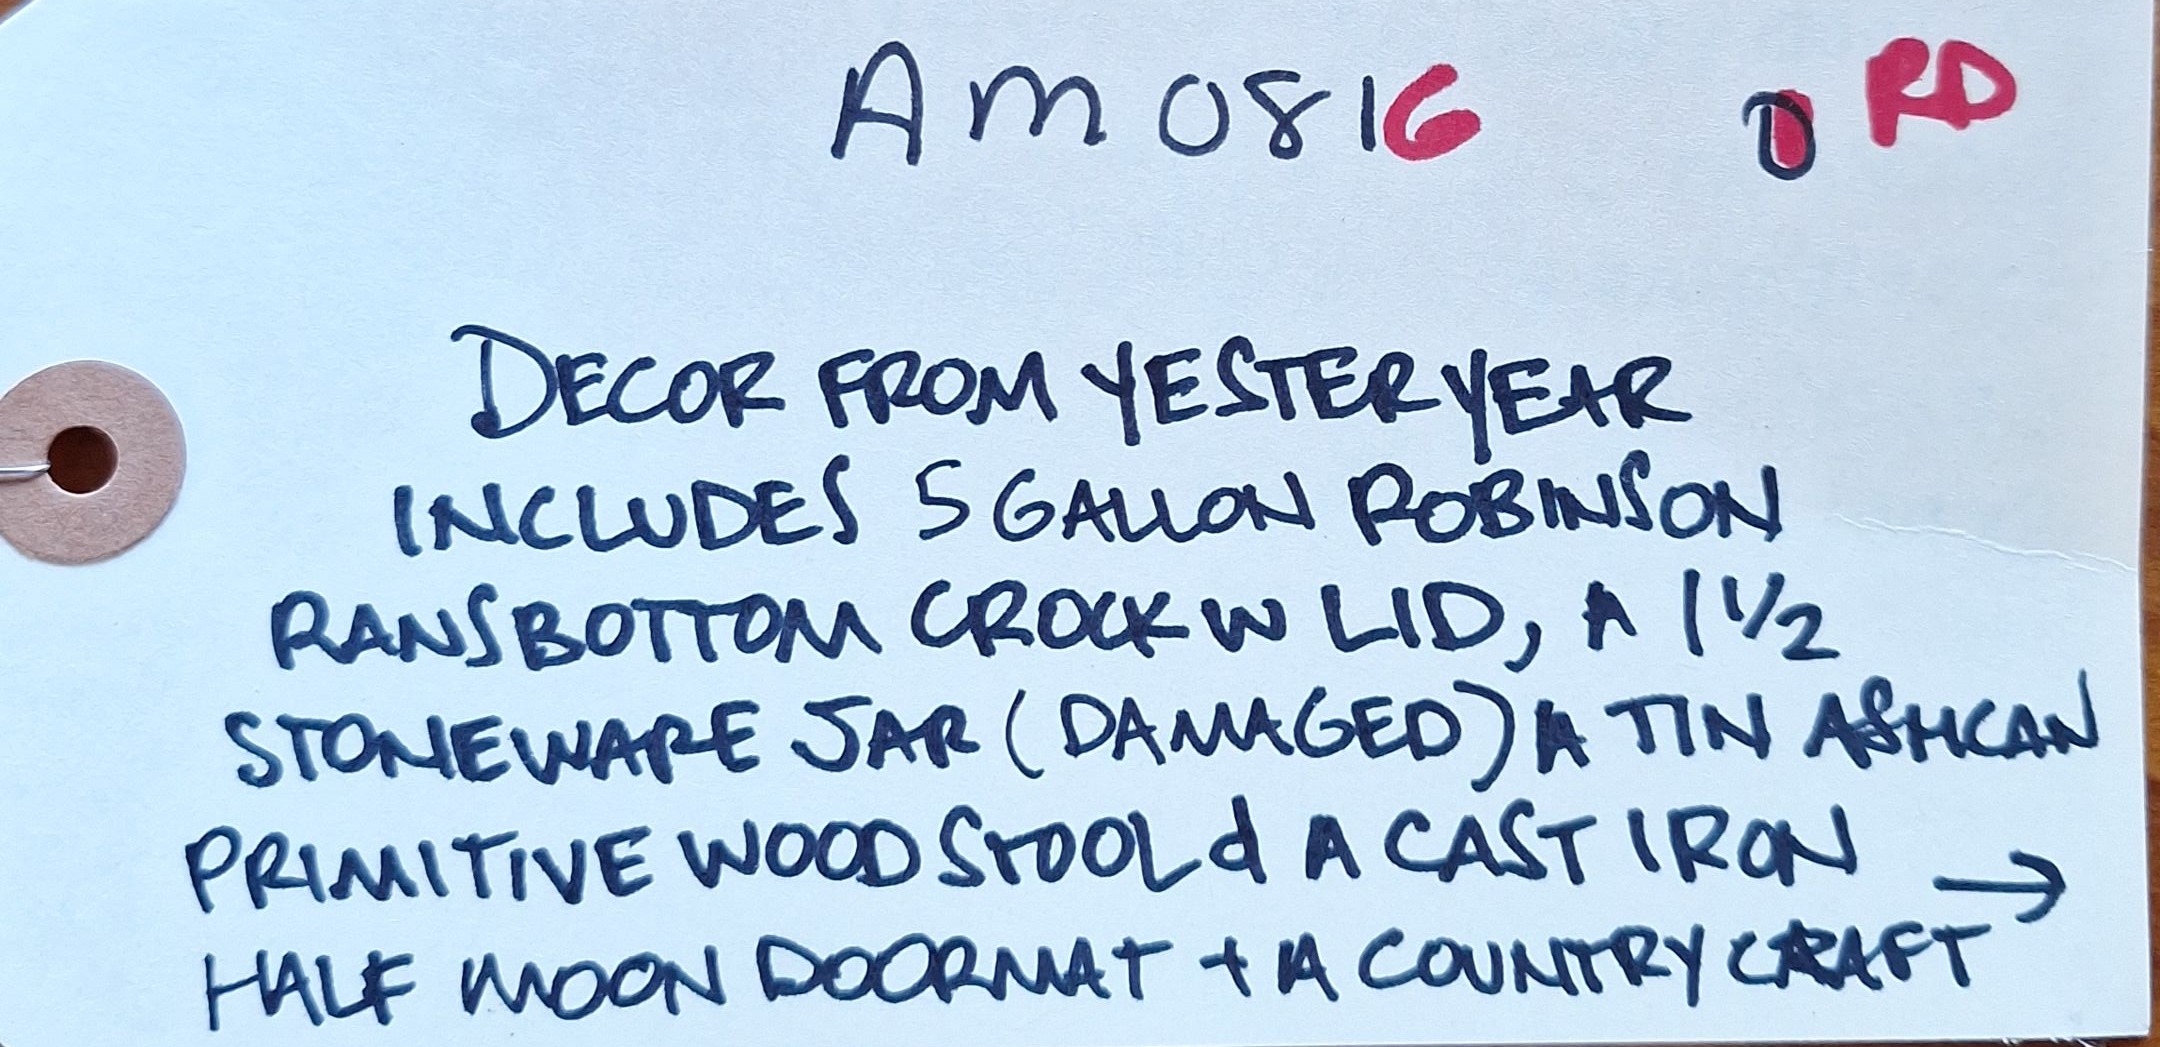 AM0816 RD
DECOR FROM YESTERYEAR
INCLUDES 5 GALLON ROBINSON
RANSBOTTOM CROCK W LID, A 1 1/2
STONEWARE JAR (DAMAGED) A TIN ASHCAN
PRIMITIVE WOOD STOOL & A CAST IRON →
HALF MOON DOORMAT + A COUNTRY CRAFT